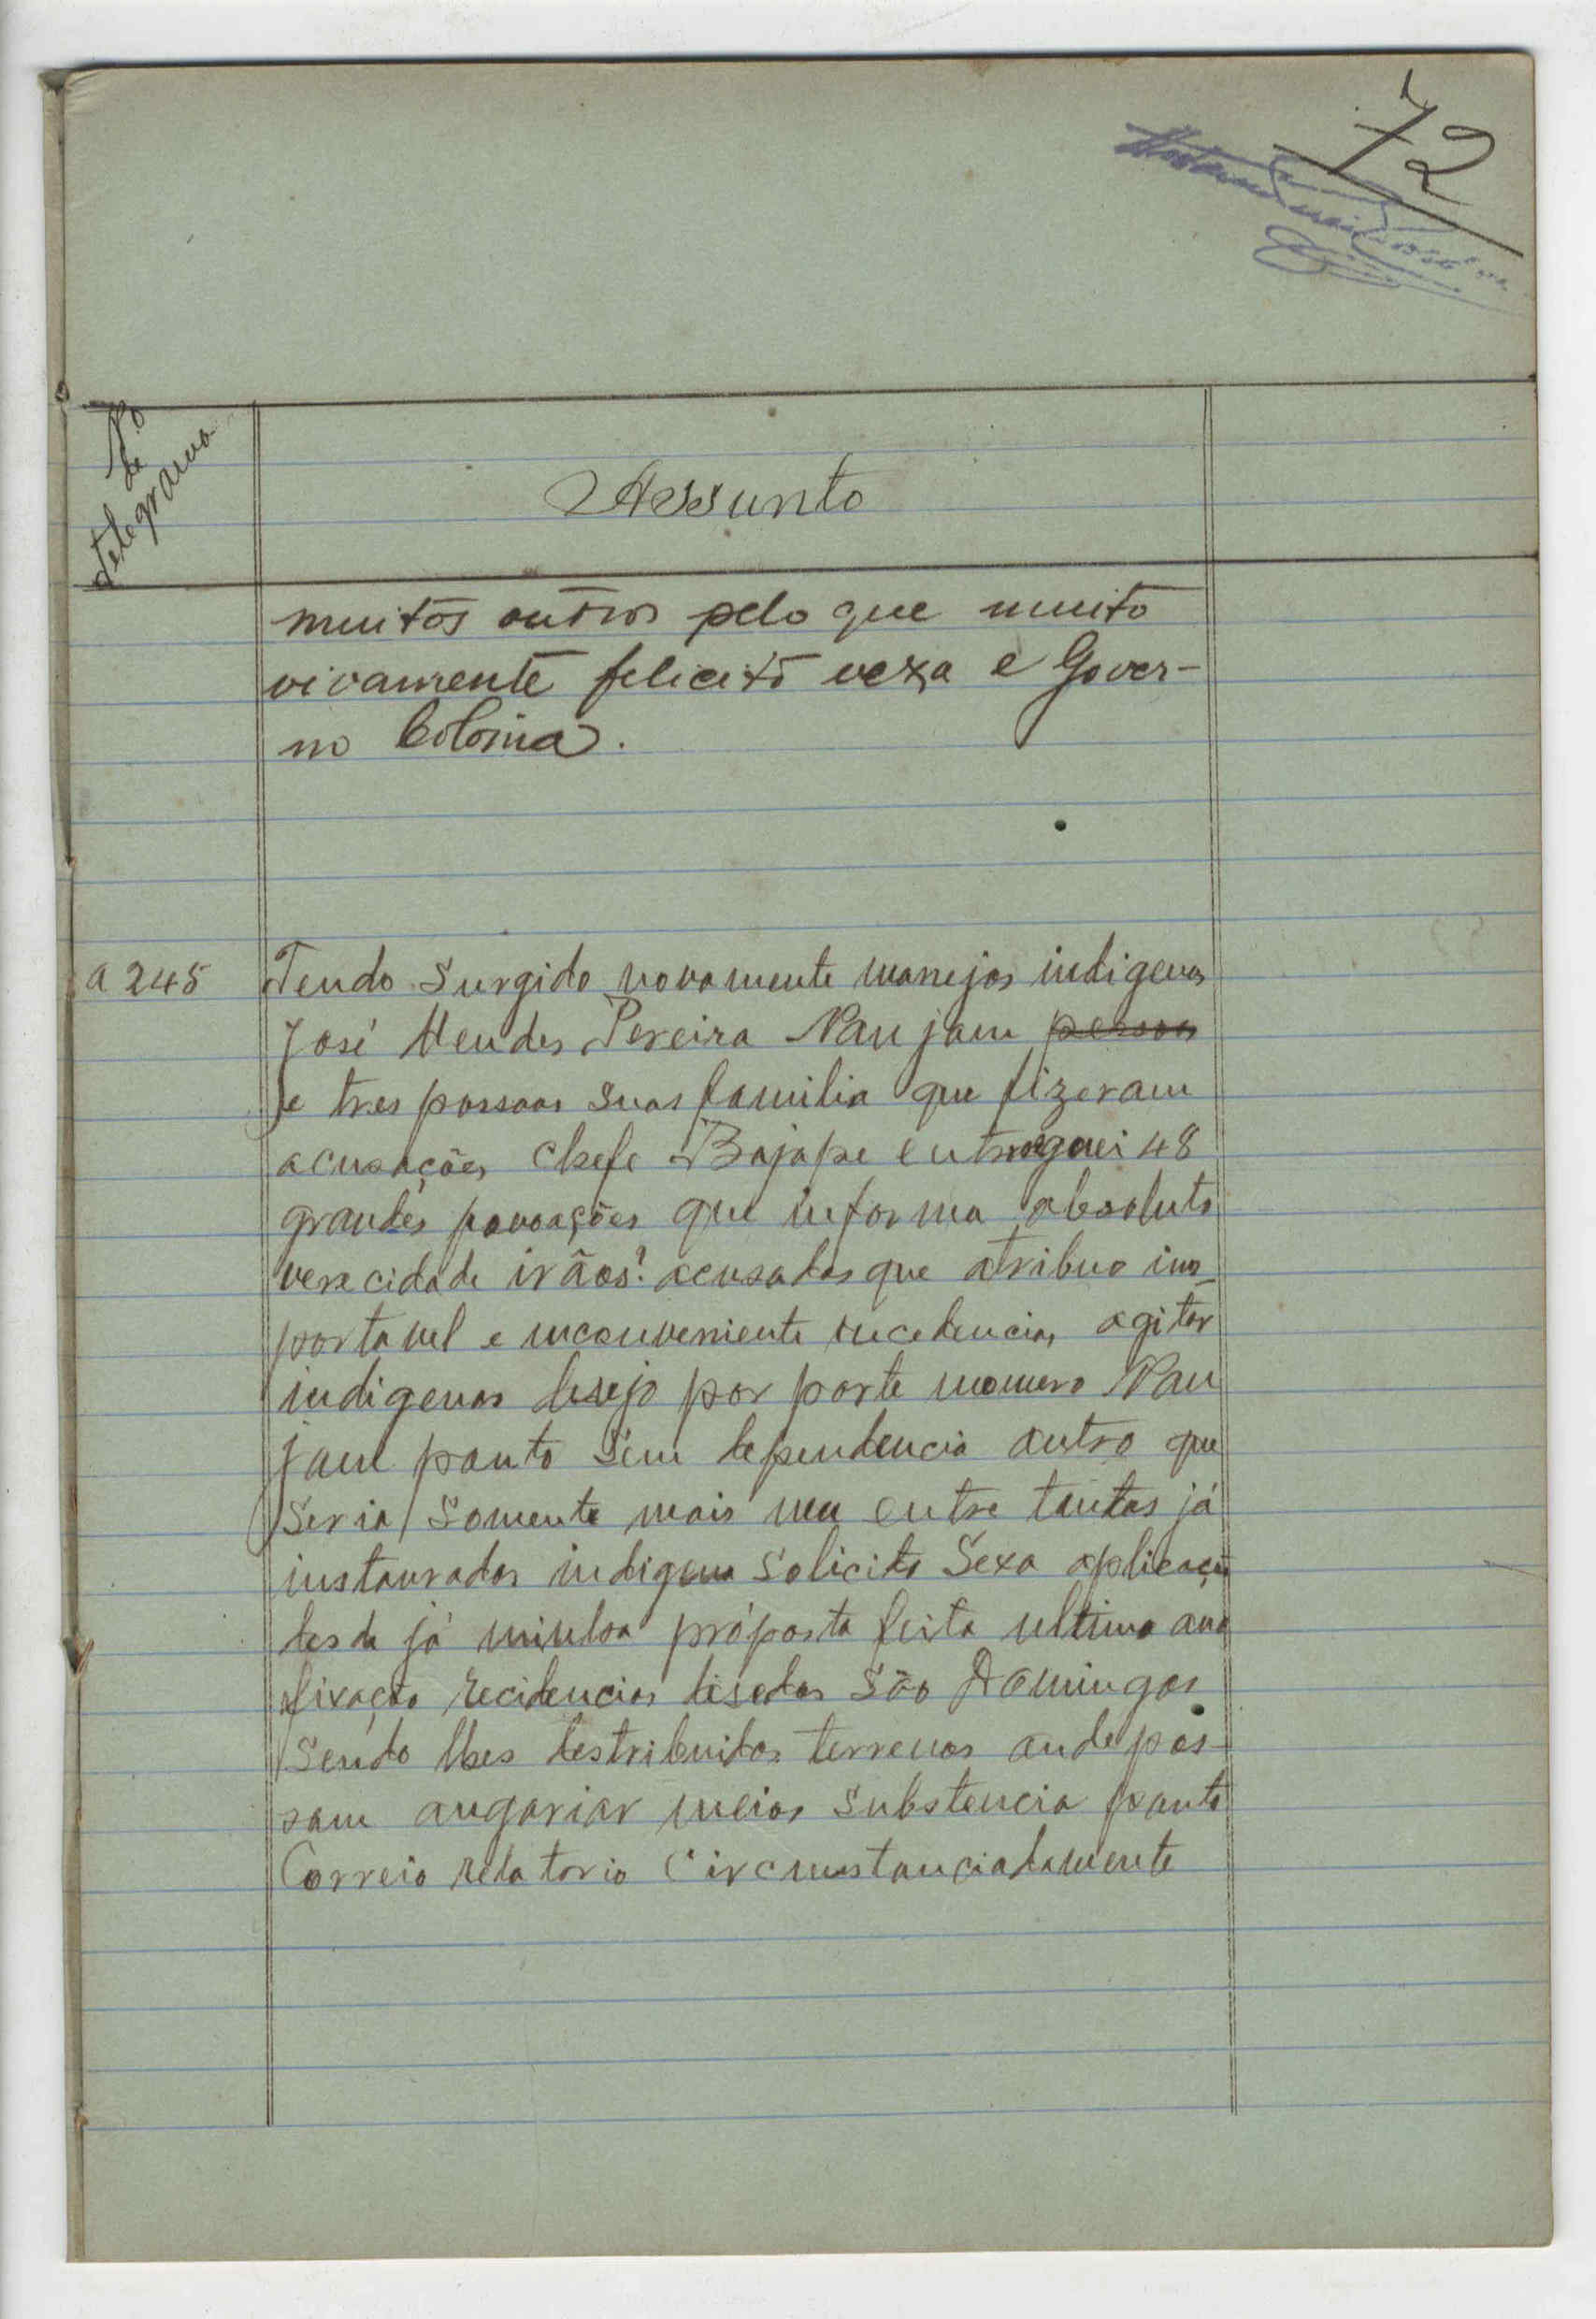 72
Nº
de
telegrama
Assunto
muitos outros pelo que muito
vivamente felicito vexa e Gover-
no Colonia.
a 245
Tendo surgido novamente manejos indigenas
José Mendes Pereira Nan jam pessoas
e tres possoas suas familia que fizeram
acusações chefe Bajape entreguei 48
grandes povoações que informa absoluta
veracidade irãos? acusados que atribuo ino
portavel e inconveniente recedencia, agitar
indigenas desejo por parte momero Nan
jam ponto sem dependencia outro que
seria somente mais um entre tantas já
instaurados indigena solicito Sexa aplicação
desde já minha próposta feita ultimo ano
fixação recidencias disedos são Domingos
sendo lhes destribuidos terrenos onde pos-
sam angariar meios substencia ponto
Correio relatorio circunstanciadamente